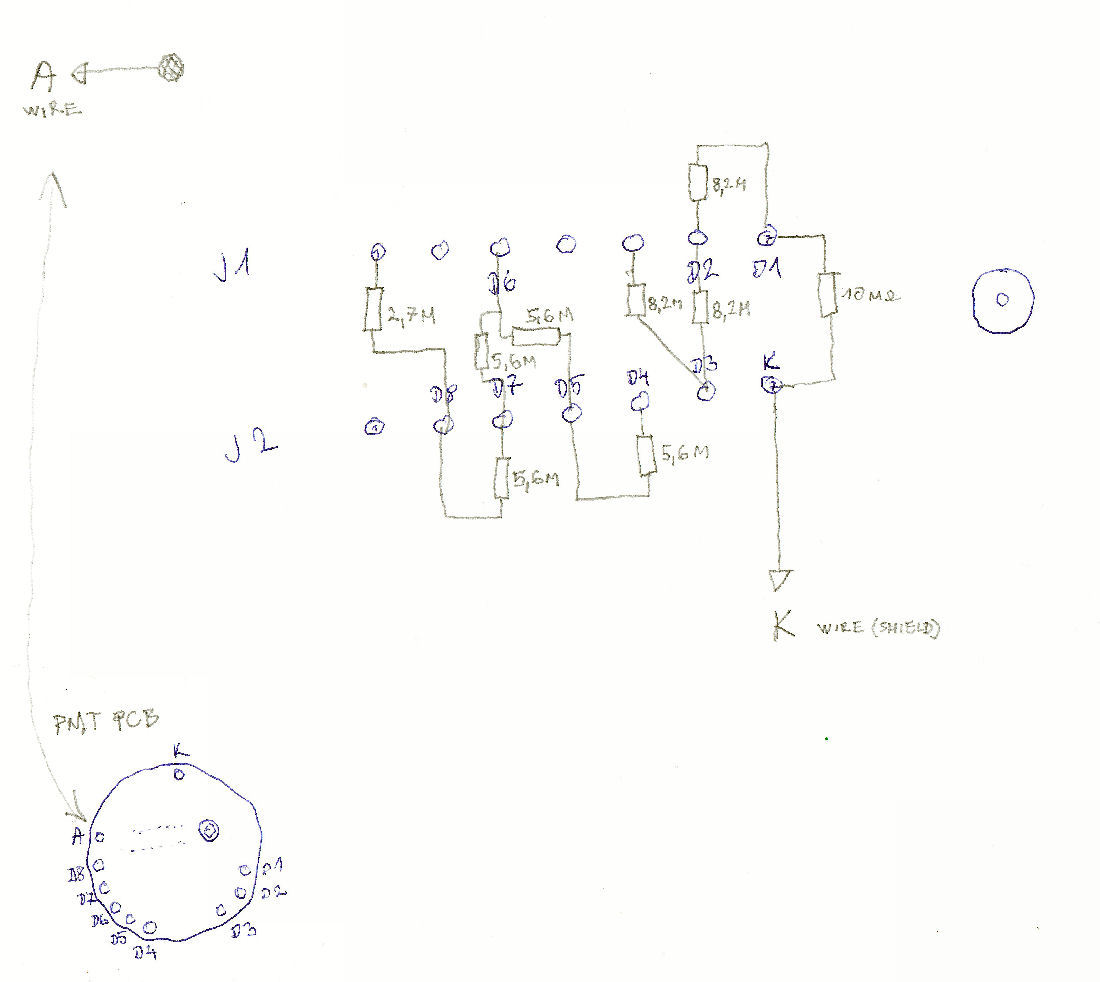 A
WIRE
8,2M
J1
D6
D2
D1
2,7M
5,6M
8,2M
8,2M
10MΩ
5,6M
D8
D7
D5
D4
D3
K
J2
5,6M
5,6M
K WIRE (SHIELD)
PMT PCB
K
A
D8
D1
D7
D2
D6
D5
D3
D4